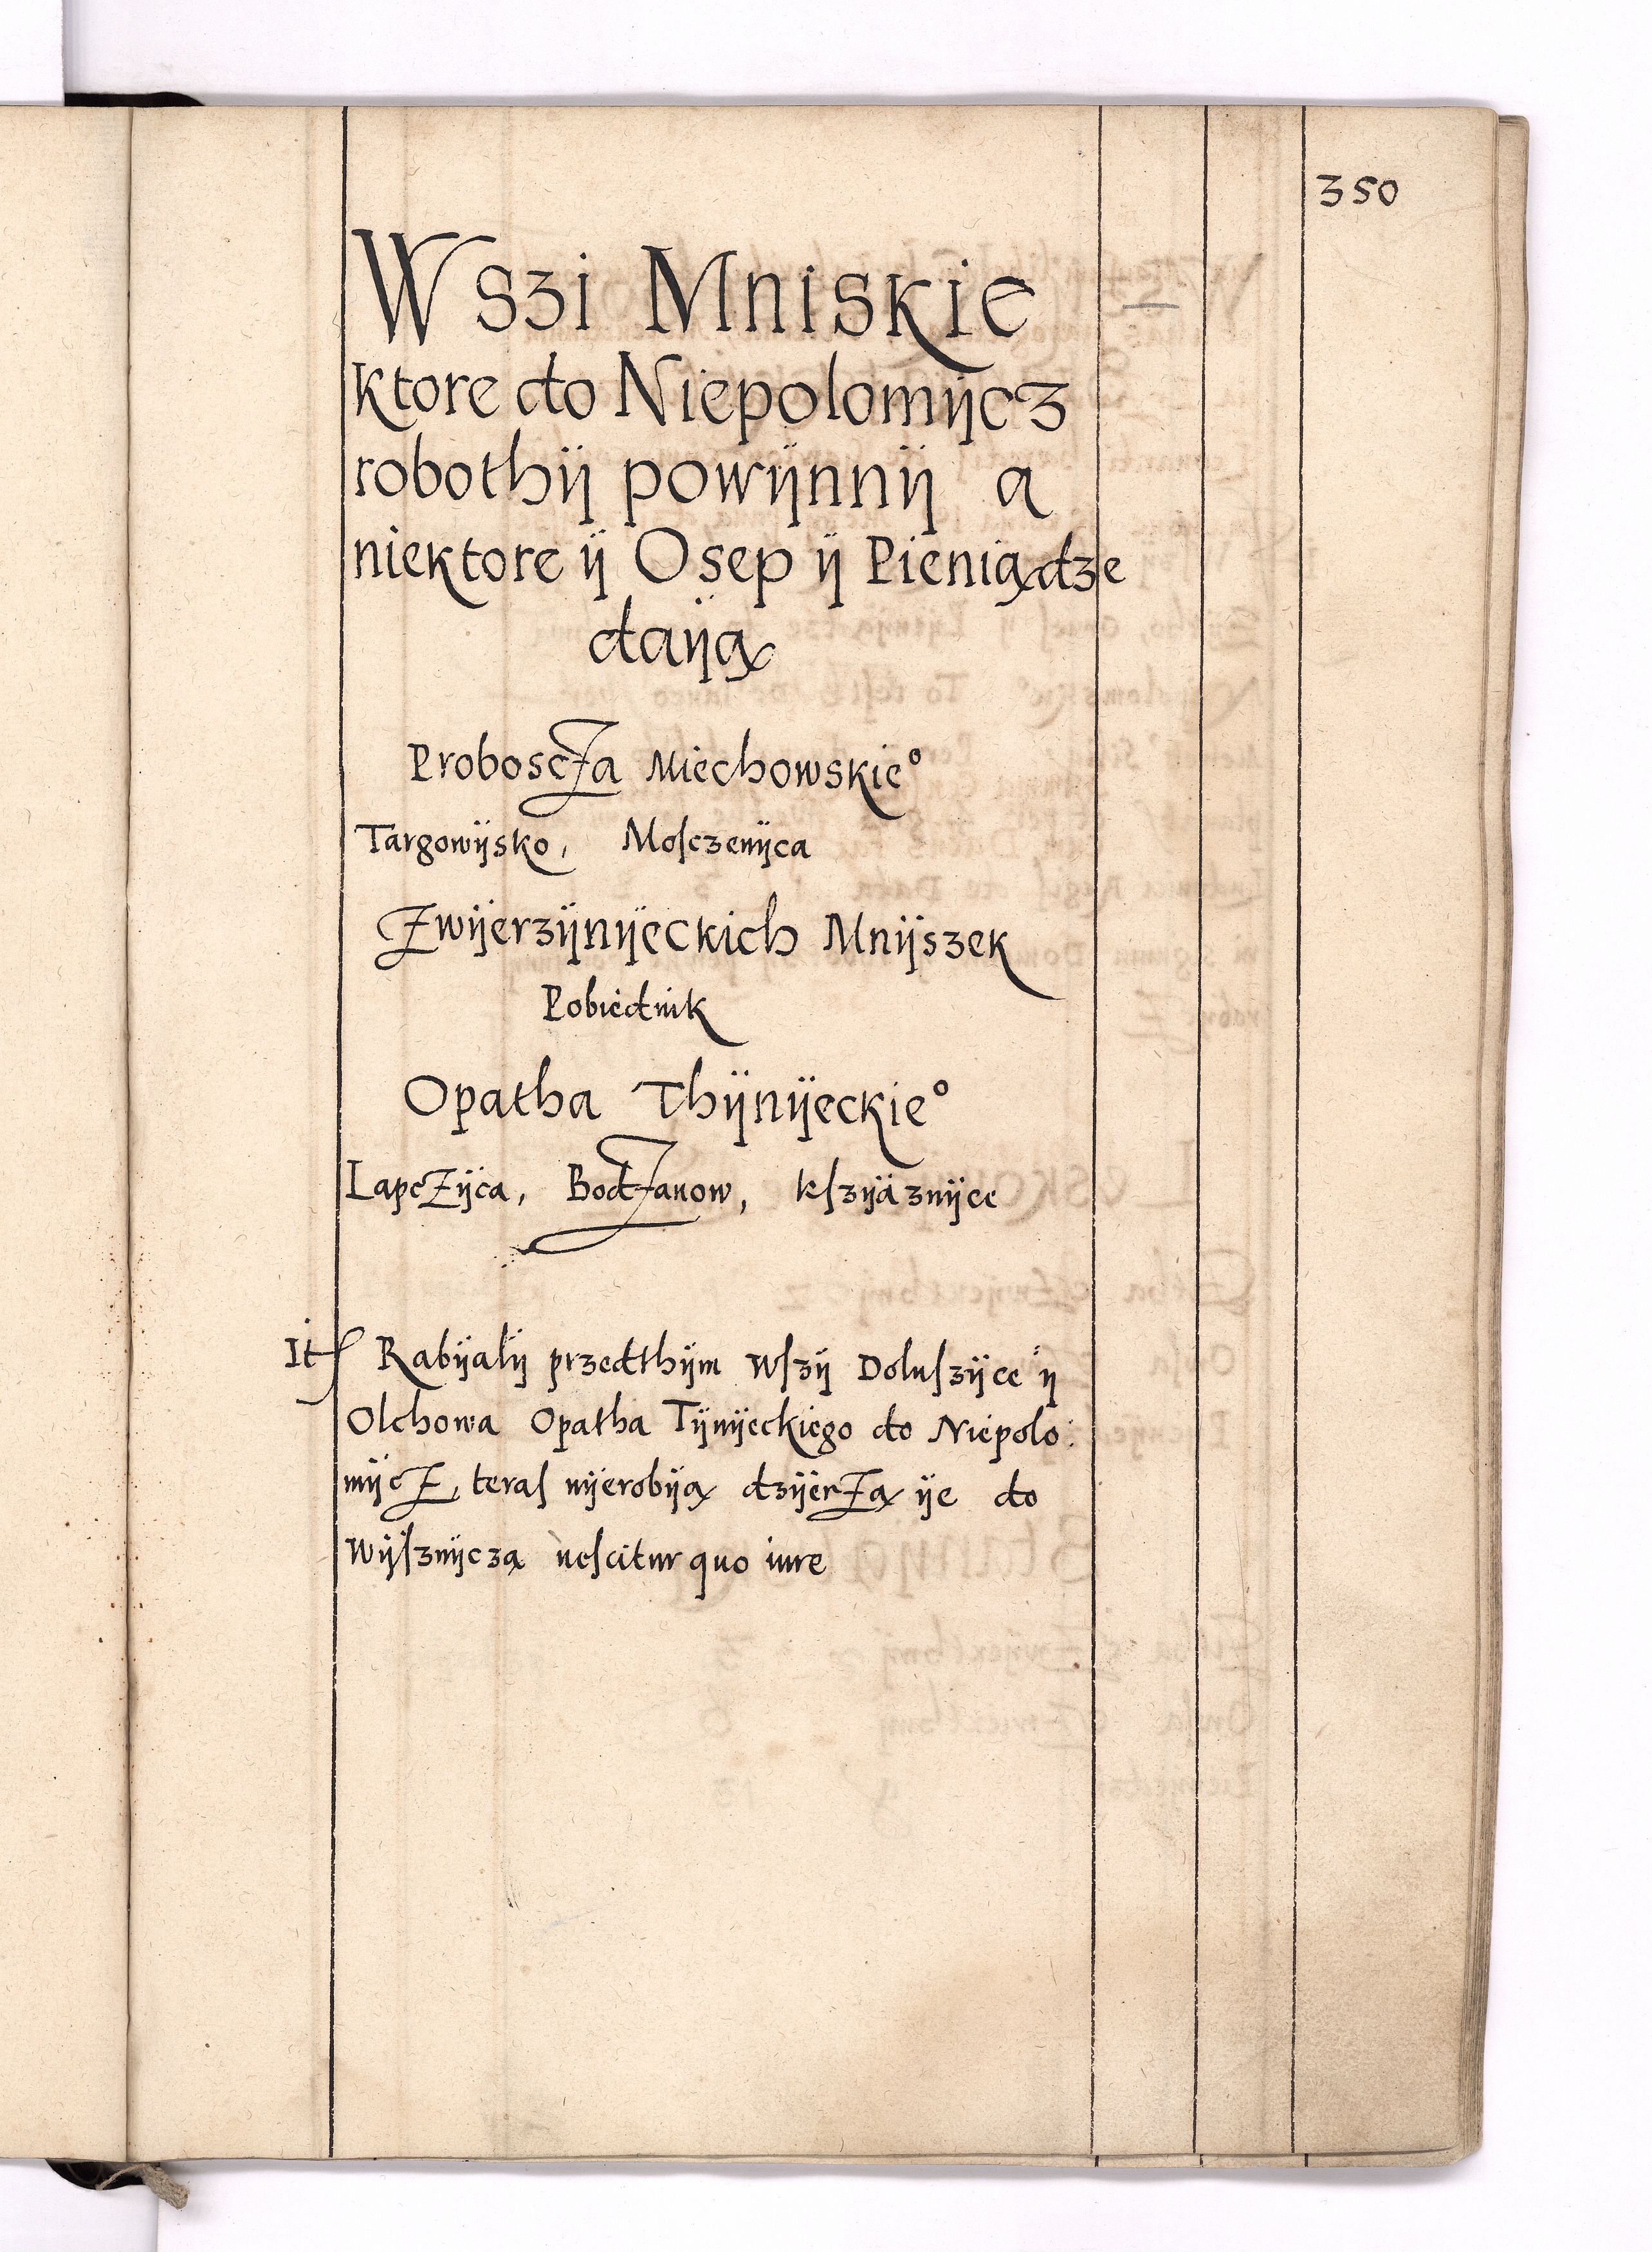 350
Wszi Mniskie
ktore do Niepolomÿcz
robothÿ powÿnnÿ a
niektore ÿ Osep ÿ Pieniądze
daÿą
Proboscza Miechowskie°
Targowÿsko, Moſczenÿca
Zwÿerzÿnÿeckich Mnÿszek
Pobiednik
Opatha Thÿnÿeckie°
Lapczÿca, Bodzanow, kſzÿaznÿce
It Rabÿalÿ przedthÿm wſzÿ Doluſzÿce ÿ
Olchowa Opatha Tÿnÿeckiego do Niepolo:
mÿcz, teraſ nÿerobÿą dzÿerzą ÿe do
Wÿſznÿcza neſcitur quo iure